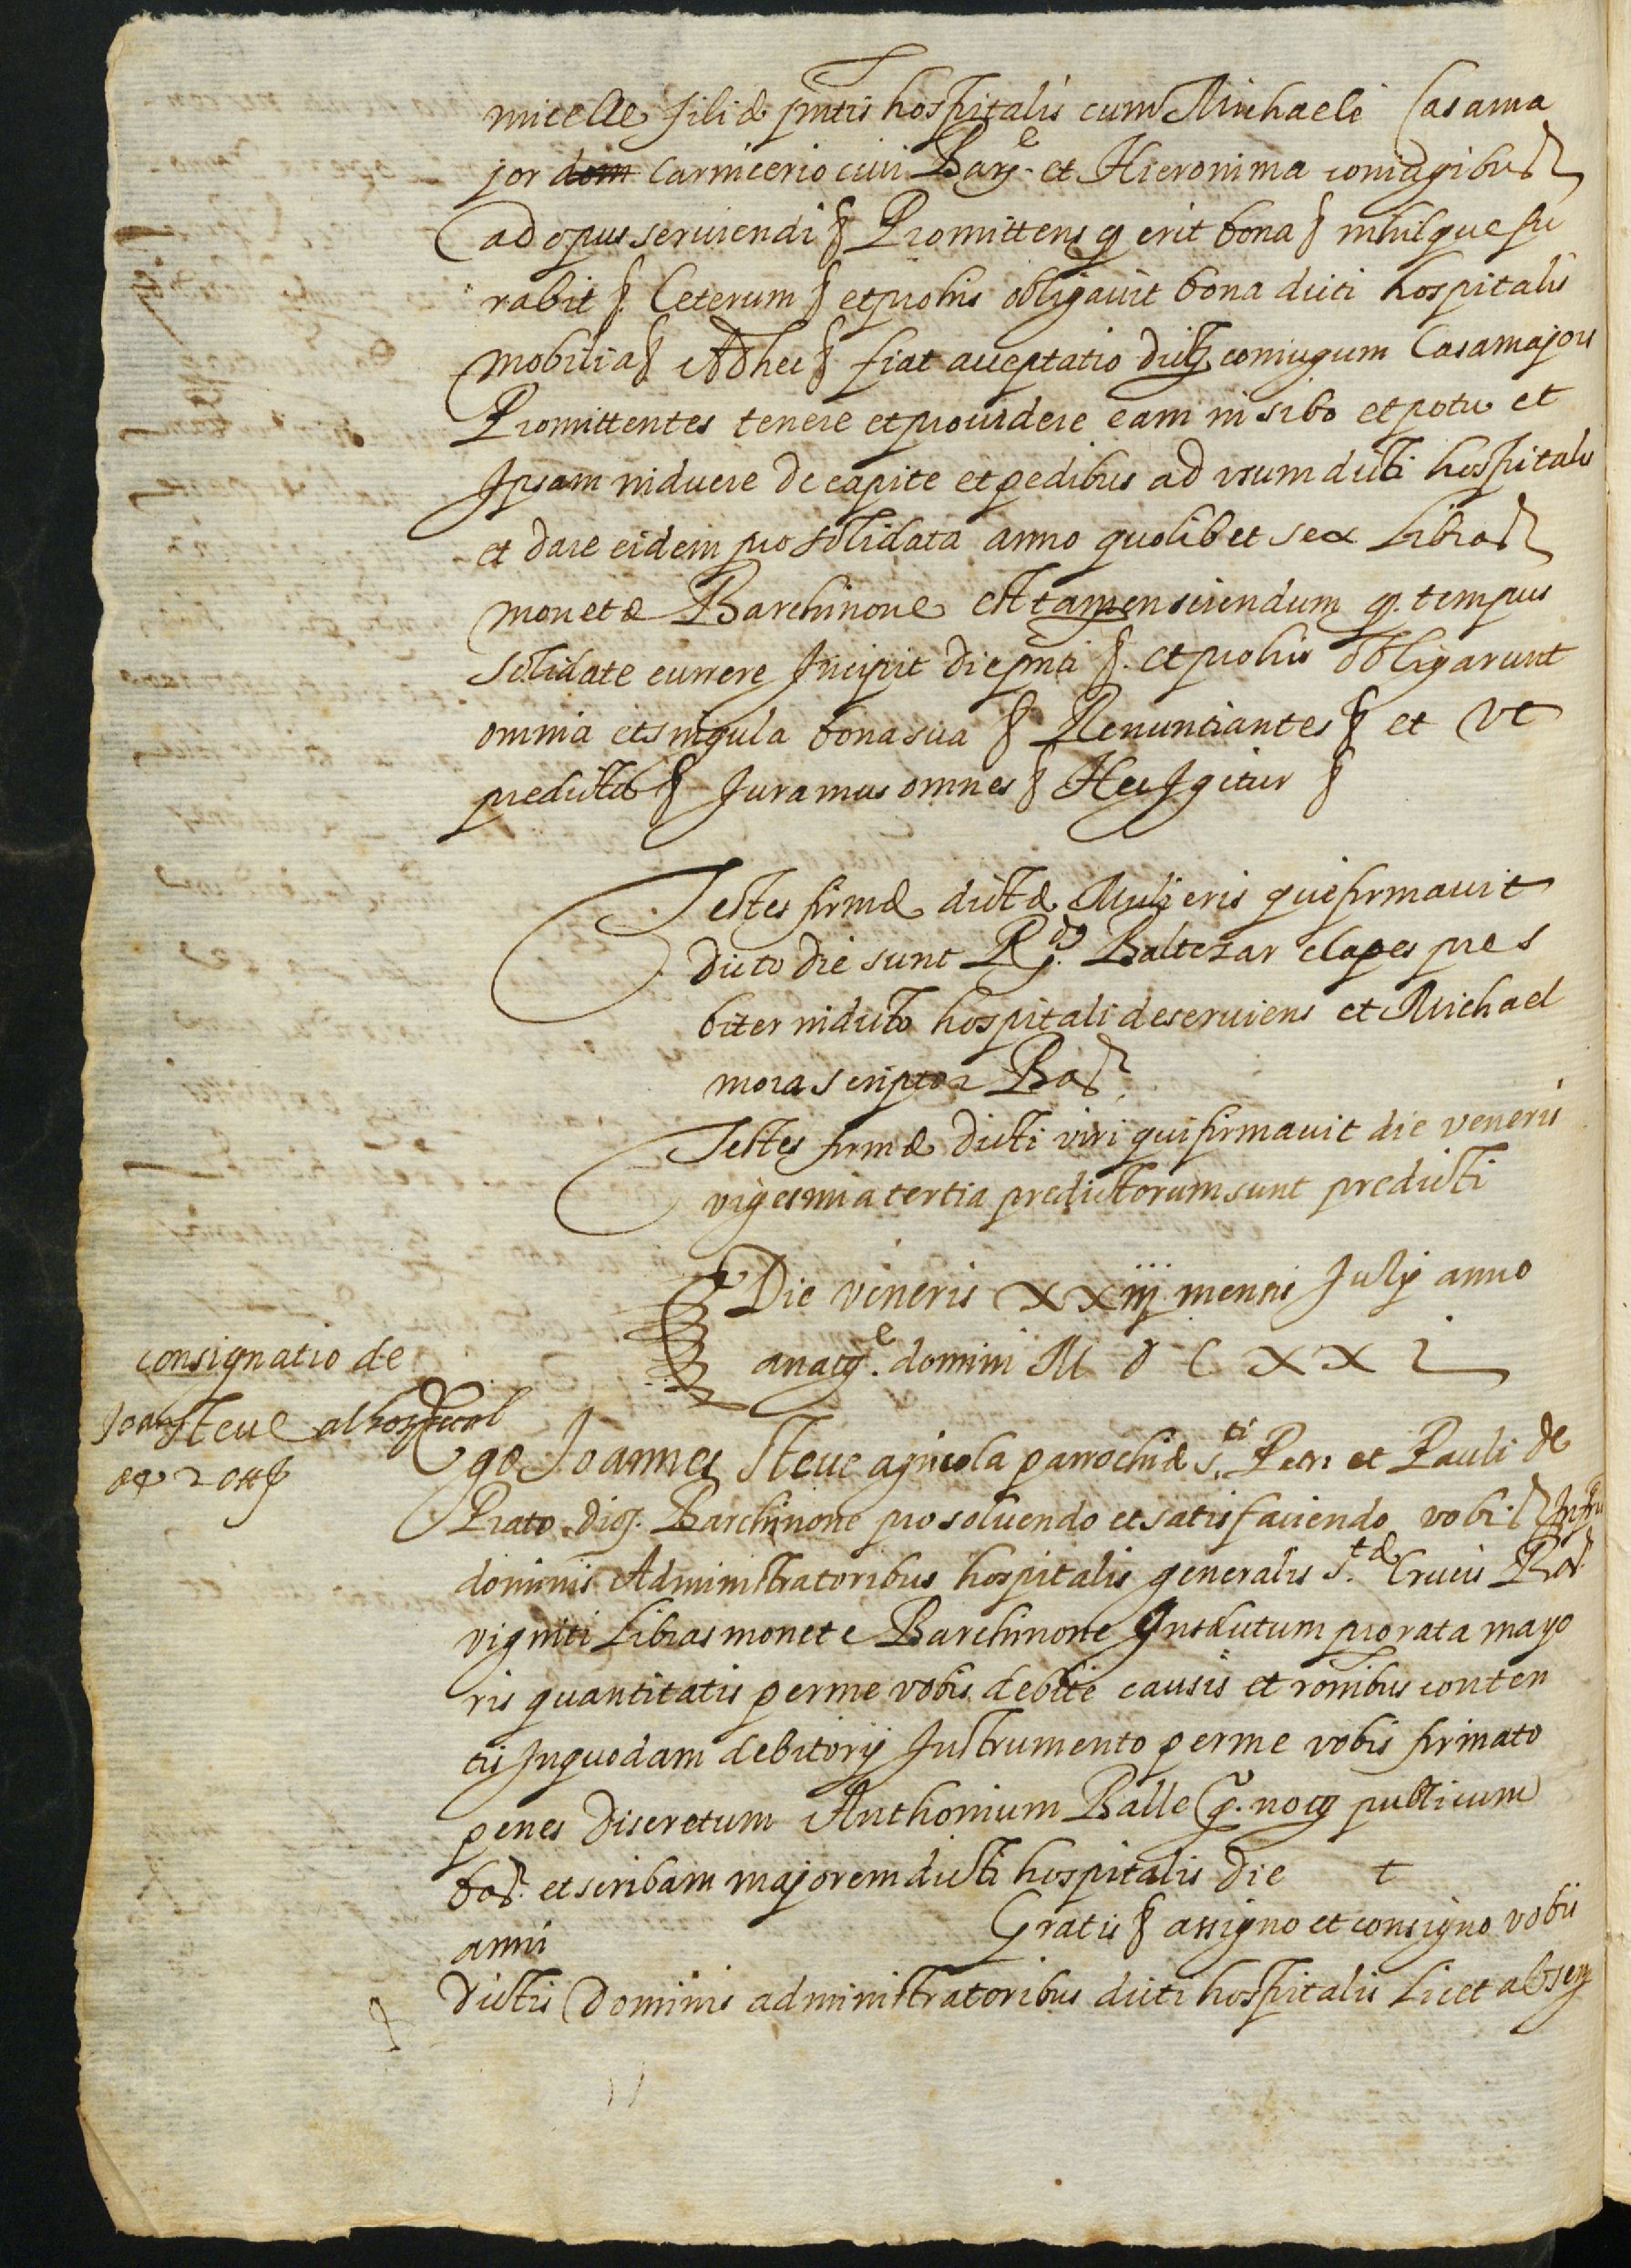 micelle filiæ pntis hospitalis cum Michaele Casama
jor dom carnicerio civi Barᵉ. et Hieronima coniugibus
ad opus seruiendi § Promittens q erit bona § nihilque fu
rabit §. Ceterum § et pro his obligauit bona dicti hospitalis
mobilia § Ad hec § fiat acceptatio dictz coniugum Casamajors
Promittentes tenere et prouidere eam in sibo et potu et
Ipsam induere de capite et pedibus ad vsum dicti hospitalis
et dare eidem pro solidata anno quolibet sex Libras
monetæ Barchinone Attamen sciendum q. tempus
solidate currere Incipit die pnti §. et pro his obligarunt
omnia et singula bona sua § Renuntiantes § et vt
predicta § Juramus omnes § Hec Igitur §
Testes firmæ dictæ Mulieris que firmauit
dicto die sunt Rdus. Baltezar clapes pres
biter in dicto hospitali deseruiens et Michael
mora scriptor Bar.
Testes firmæ dicti viri qui firmauit die veneris
vigesima tertia predictorum sunt predicti
Die veneris xxiij mensis Julij anno
a natᵉ. domini M d C xx j
consignatio de
Joan Steue al hospital
de 20 ℔
Ego Joannes Steue agricola parrochiæ S.ti Petri et Pauli de
Prato dioç. Barchinone pro soluendo et satisfaciendo vobis
dominis Administratoribus hospitalis generalis S.tæ Crucis Bar.
viginti Libras monete Barchinone Insolutum prorata mayo
ris quantitatis per me vobis debite causis et rónibus conten
tis In quodam debitorij Instrumento per me vobis firmato
penes discretum Anthonium Batlle q. noty publicum
bar. et scribam majorem dicti hospitalis die t
anni Gratis § assigno et consigno vobis
dictis Dominis administratoribus dicti hospitalis Licet absen